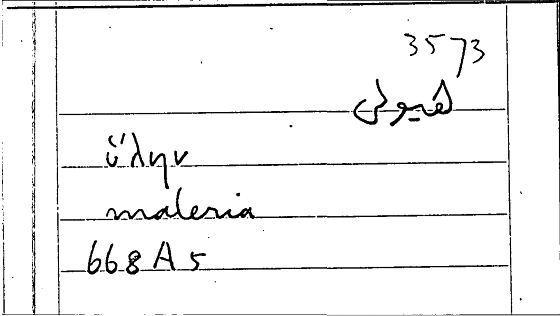 3573
ὕλην
materia
668 A 5